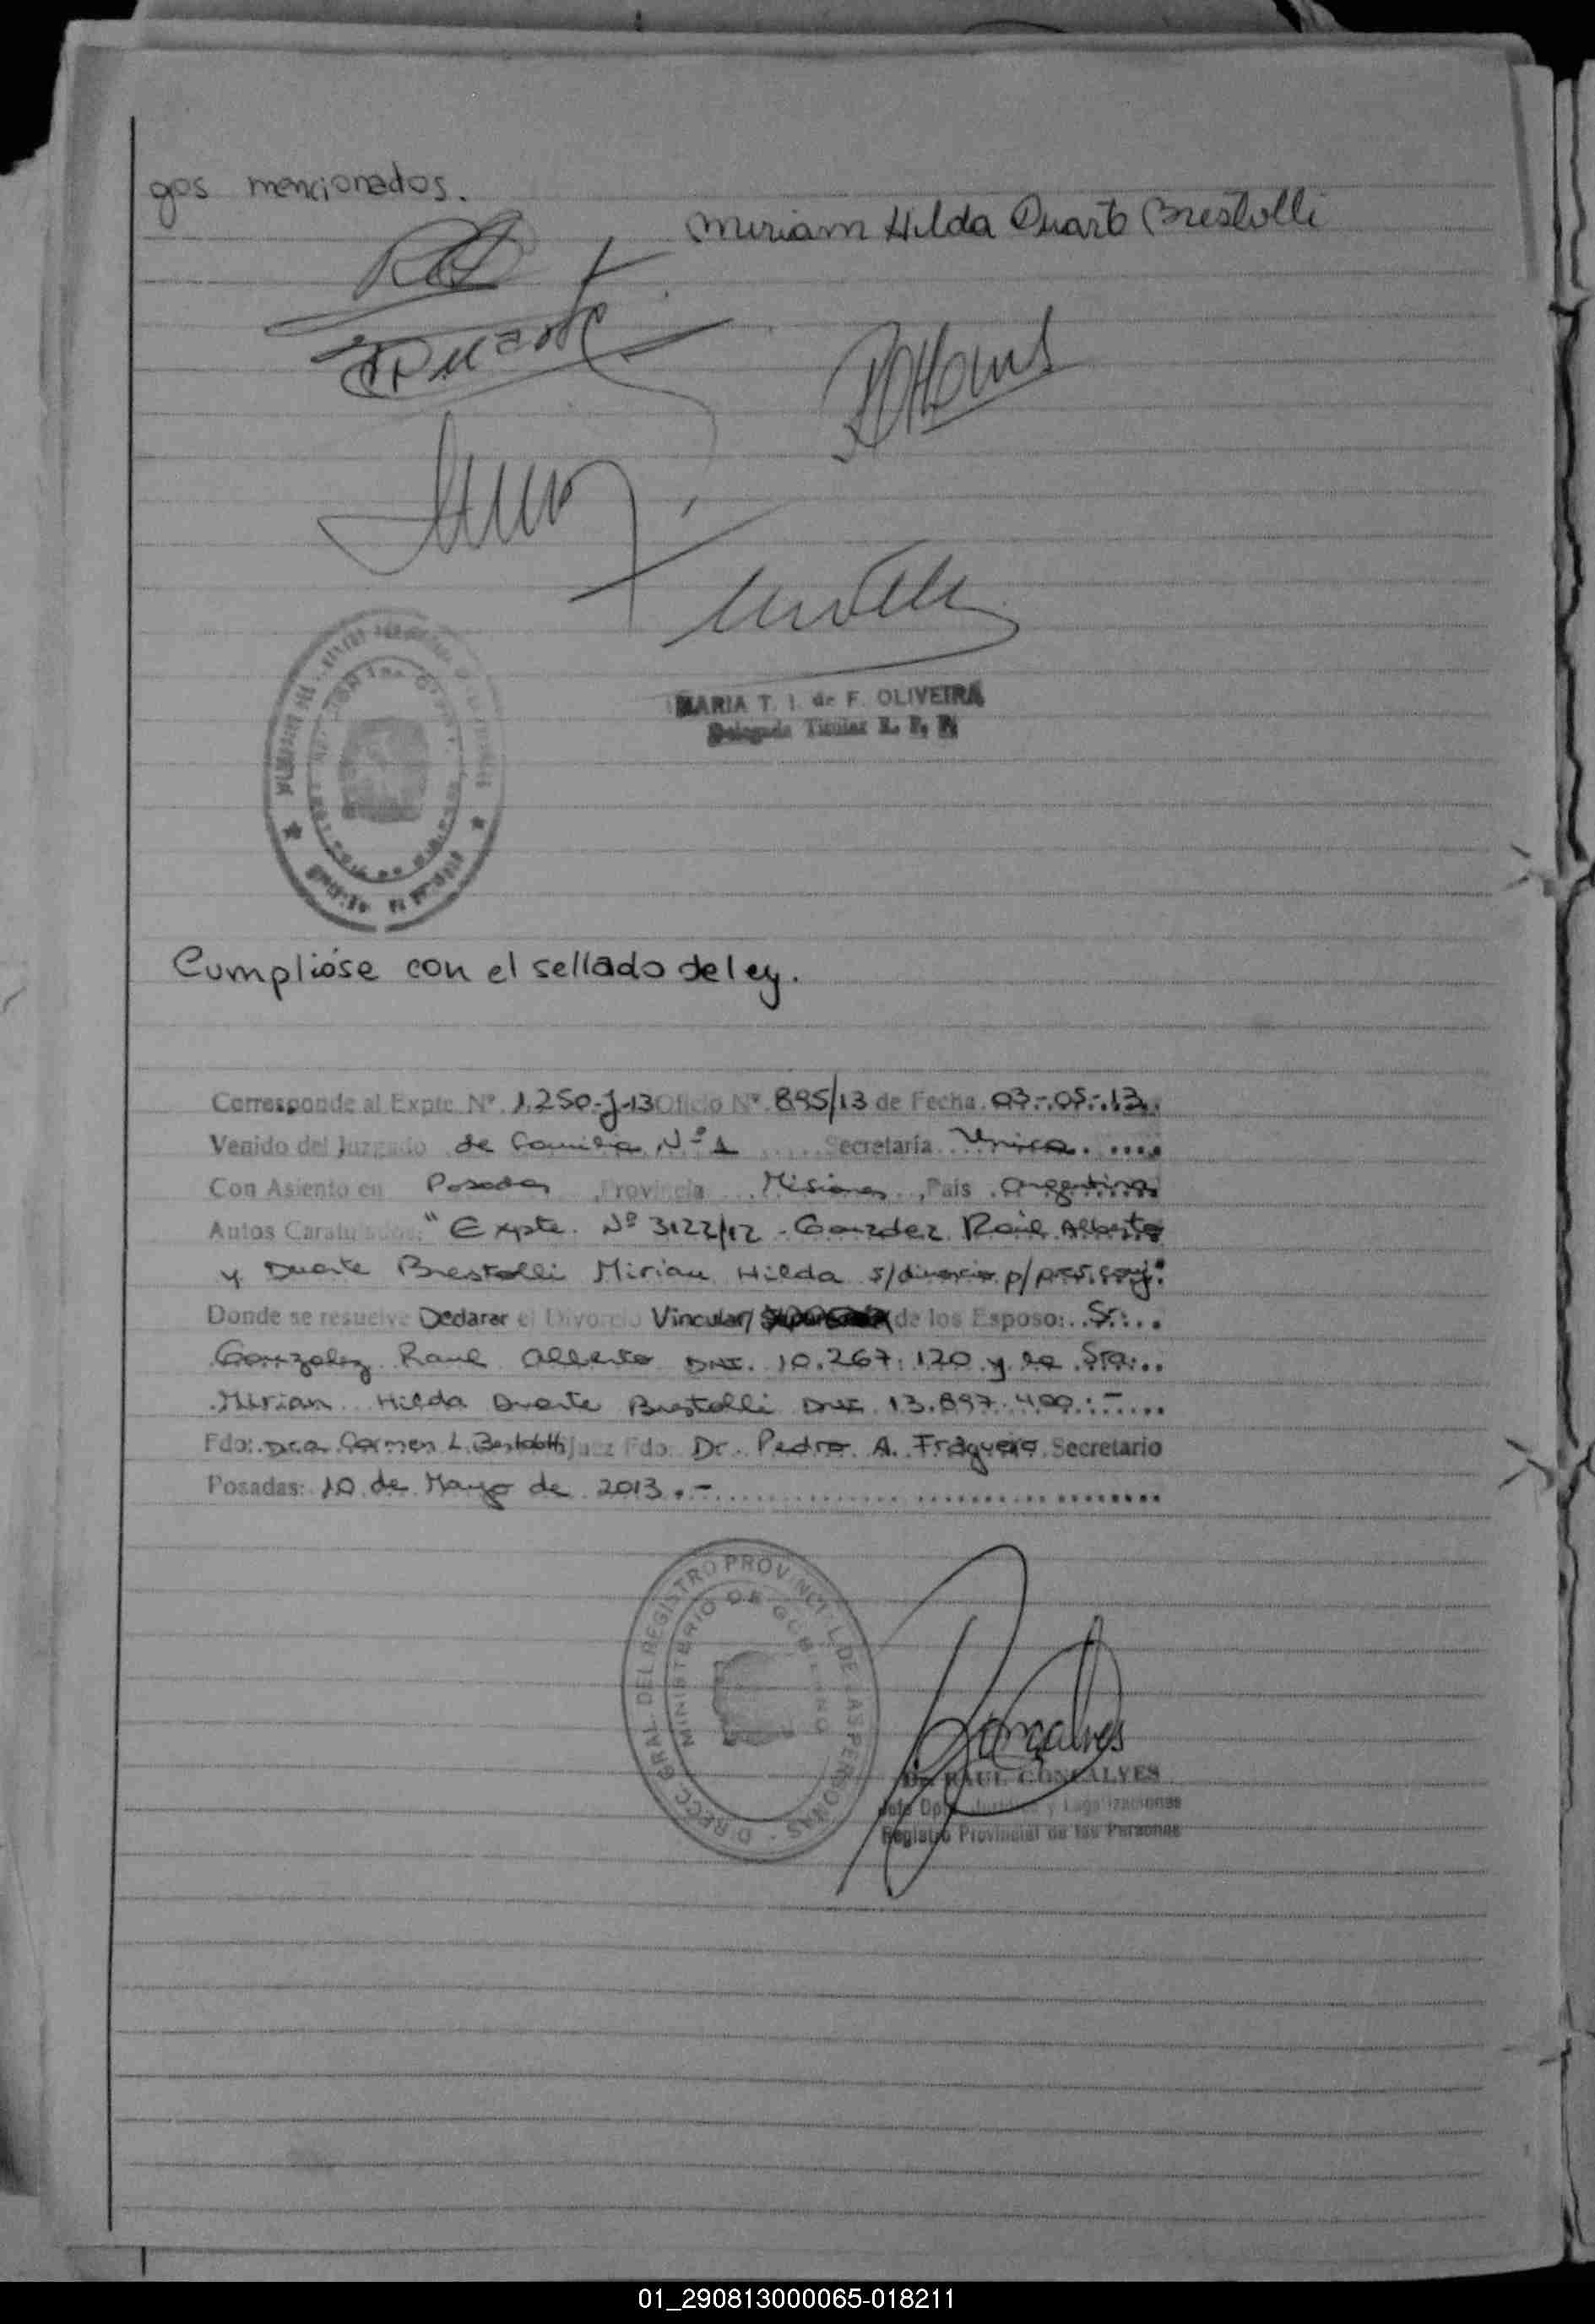 gos mencionados.
Miriam Hilda Duarte Brestolli
MARIA T. I. de F. OLIVEIRA
Delegada Titular R. P. P.
Cumplióse con el sellado de ley.
Corresponde al Expte. Nº 1.250-J-13 Oficio Nº 895/13 de Fecha 03-05-13.
Venido del Juzgado de Familia Nº 1 Secretaría Unica.
Con Asiento en Posadas Provincia Misiones, País Argentina
Autos Caratulados: "Expte. Nº 3122/12 - Gonzalez Raúl Alberto
y Duarte Brestolli Mirian Hilda s/divorcio p/pres. conj."
Donde se resuelve Declarar el Divorcio Vincular/ de los Esposo: Sr.
Gonzalez Raul Alberto DNI. 10.267.120 y la Sra.
Mirian Hilda Duarte Brestolli DNI 13.897.400.-
Fdo: Dra. Carmen L. Juez Fdo: Dr. Pedro A. Fraguero Secretario
Posadas: 10 de Mayo de 2013.-
DIRECC. GRAL. DEL REGISTRO PROVINCIAL DE LAS PERSONAS
MINISTERIO DE GOBIERNO
Gonçalves
Dr. RAUL GONÇALVES
Jefe Dpto. Jurídico y Legalizaciones
Registro Provincial de las Personas
01_290813000065-018211